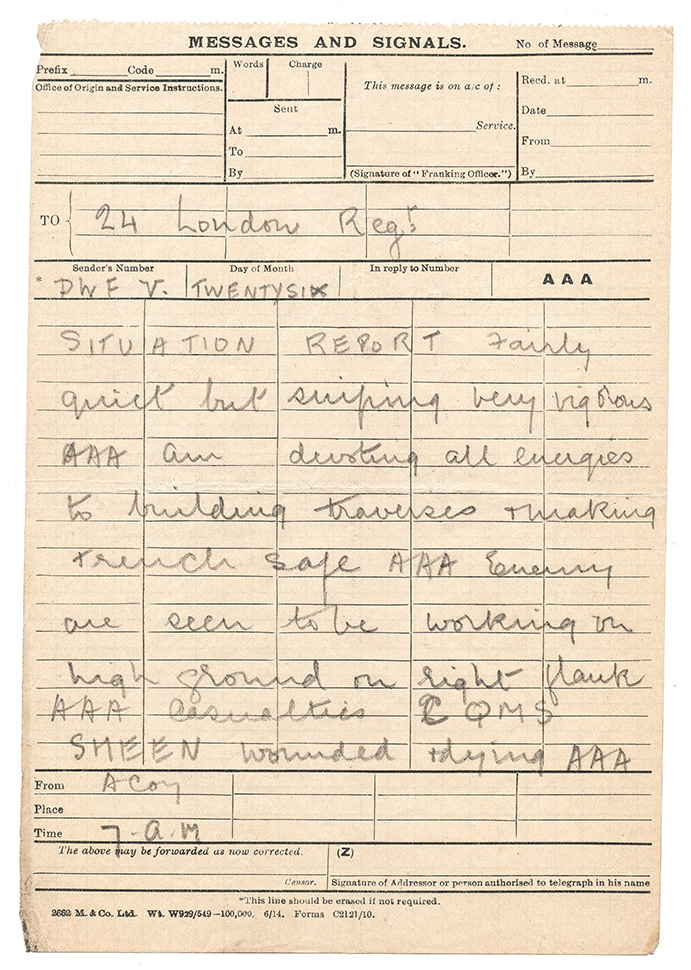 MESSAGES AND SIGNALS. No of Message
Prefix Code m. Words Charge This message is on a/c of : Recd. at m.
Office of Origin and Service Instructions. Date
Sent Service.
At m. From
To
By (Signature of "Franking Officer.") By
TO 24 London Regt.
Sender's Number Day of Month In reply to Number AAA
* TWENTYSIX
SITUATION REPORT Fairly
quiet but sniping very vigorous
AAA am devoting all energies
to building traverses + making
trench safe AAA Enemy
are seen to be working on
high ground on right flank
AAA Casualties CQMS
SHEEN wounded + dying AAA
From A Coy
Place
Time 7-A.M
The above may be forwarded as now corrected. (Z)
Censor. Signature of Addressor or person authorised to telegraph in his name
*This line should be erased if not required.
2662 M. & Co. Ltd. Wt. W929/549—100,000. 6/14. Forms C2121/10.